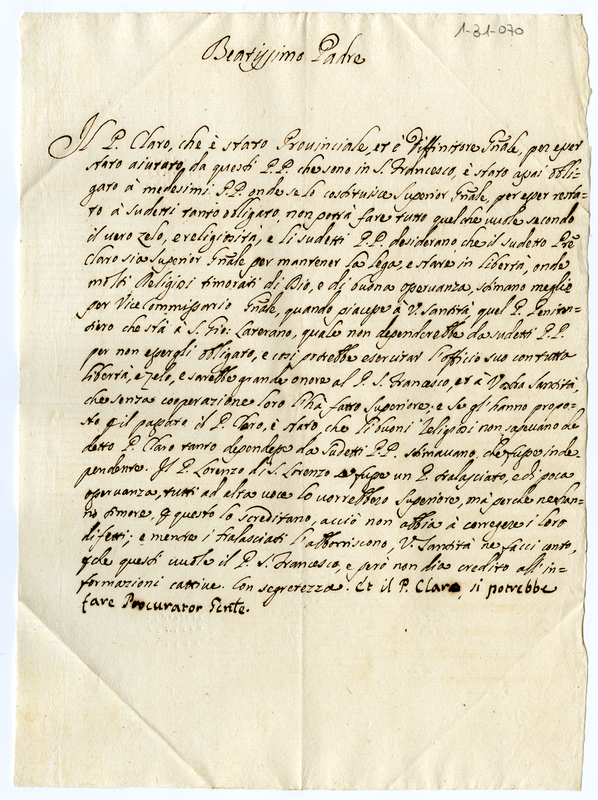 1-31-070
Beatissimo Padre
Il P. Claro, che è stato Provinciale, et è Diffinitore Gnãle, per esser
stato aiutato, da questi P.P. che sono in S. Francesco, è stato assai obli-
gato à medesimi P.P. onde se lo costituisce Superior Gnãle, per esser resta-
to à sudetti tanto obligato, non potrà fare tutto quel che vuole secondo
il vero zelo, e religiosità, e li sudetti P.P. desiderano che il sudetto Prẽ
Claro sia Superior Gnãle per mantener la lega, e stare in libertà, onde
molti Religiosi timorati di Dio, e di buona osservanza, stimano meglio
per Vice Commissario Gnãle, quando piacesse à V. Santità, quel P. Peniten-
tiero che stà à S. Gio: Laterano, quale non dependerebbe da sudetti P.P.
per non essergli obligato, e così potrebbe esercitar l'officio suo con tutta
libertà, e zelo, e sarebbe grande onore al P. S. Francesco, et à Vostra Santità,
che senza cooperazione loro l'hà fatto Superiore; e se gl'hanno propo-
sto il passato il P. Claro, è stato, che li buoni Religiosi non sapevano che
detto P. Claro tanto dependesse da sudetti P.P. stimavano, che fusse inde
pendente. Il P. Lorenzo di S. Lorenzo se fusse un P. tralasciato, e di poca
osservanza, tutti ad alta voce lo vorrebbero Superiore, mà perche ne han-
no timore, questo lo screditano, acciò non abbia à correggere i loro
difetti; e mentre i tralasciati l'abborriscono, V. Santità ne facci conto,
che questi vuole il P. S. Francesco, e però non dia credito all'in-
formazioni cattive. Con segretezza. Et il P. Claro, si potrebbe
fare Procurator Gen̄le.